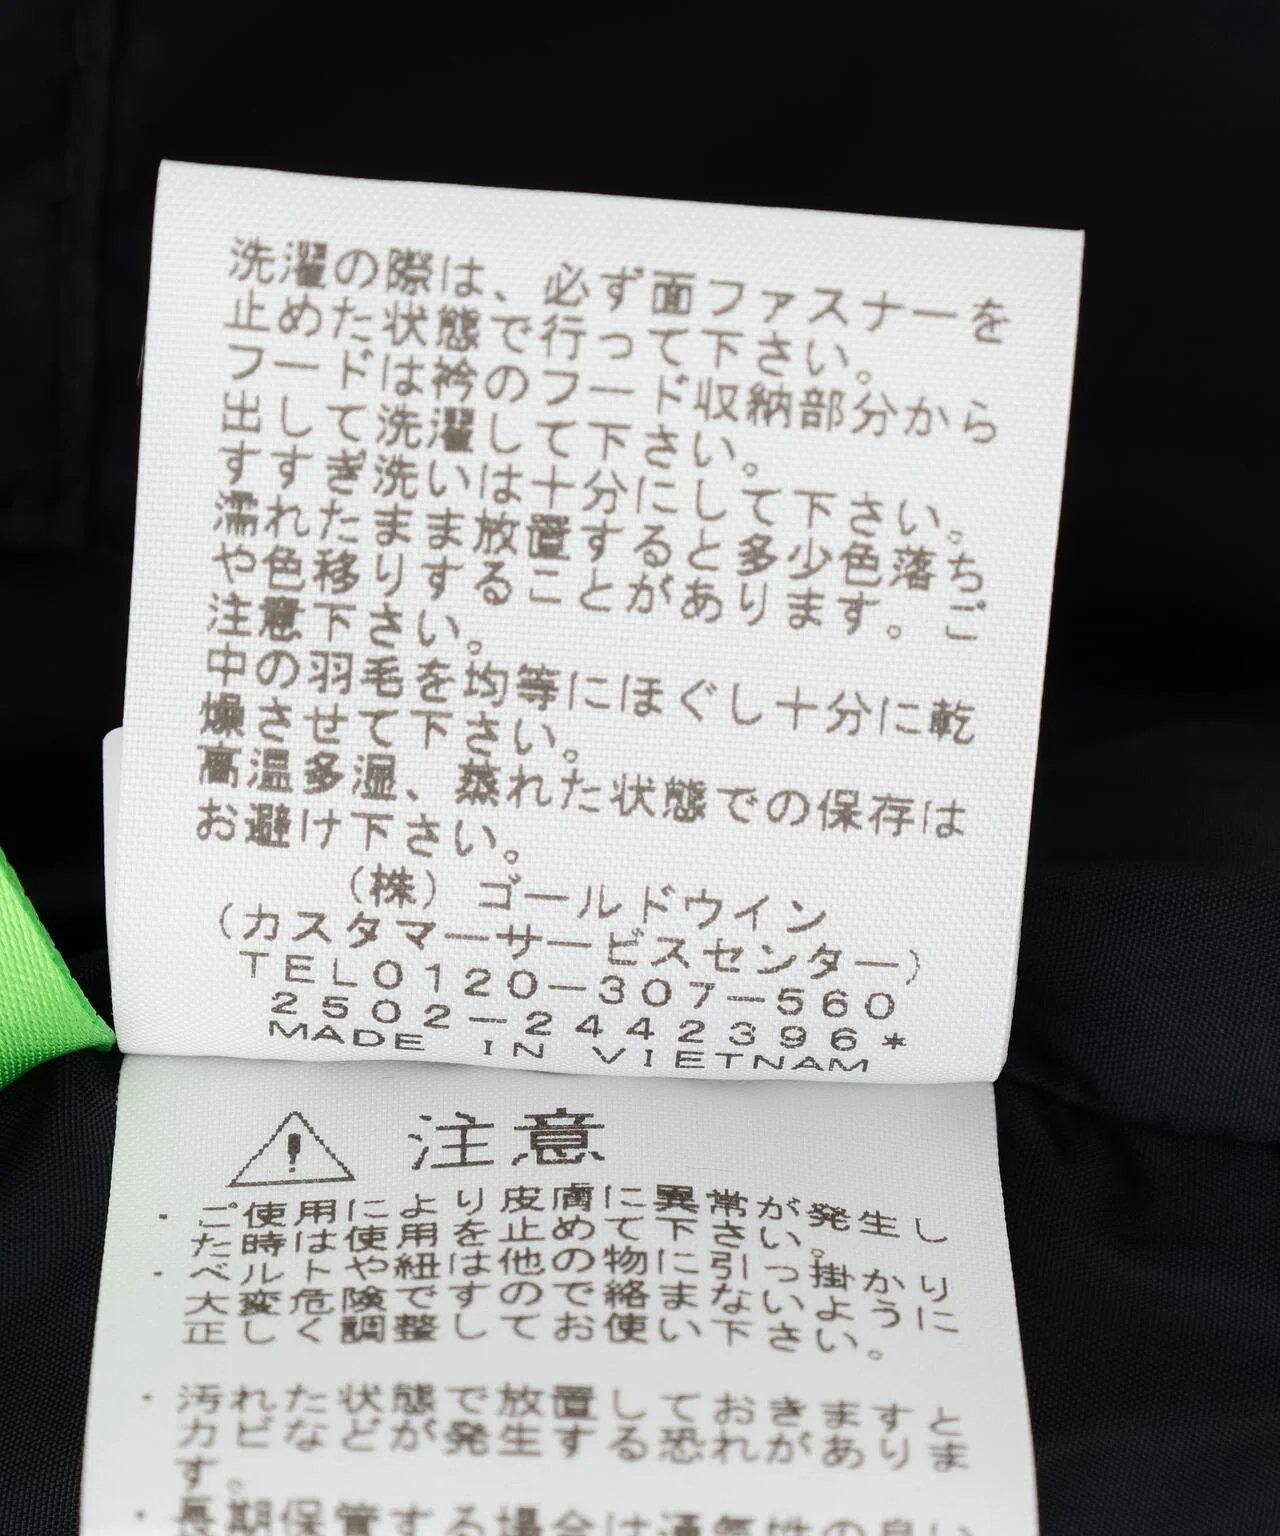 洗濯の際は、必ず面ファスナーを
止めた状態で行って下さい。
フードは衿のフード収納部分から
出して洗濯して下さい。
すすぎ洗いは十分にして下さい。
濡れたまま放置すると多少色落ち
や色移りすることがあります。ご
注意下さい。
中の羽毛を均等にほぐし十分に乾
燥させて下さい。
高温多湿、蒸れた状態での保存は
お避け下さい。
(株)ゴールドウイン
(カスタマーサービスセンター)
TEL0120-307-560
2502-2442396*
MADE IN VIETNAM
注意
・ご使用により皮膚に異常が発生し
た時は使用を止めて下さい。
・ベルトや紐は他の物に引っ掛かり
大変危険ですので絡まないように
正しく調整してお使い下さい。
・汚れた状態で放置しておきますと
カビなどが発生する恐れがありま
す。
・長期保管する場合は通気性の良い